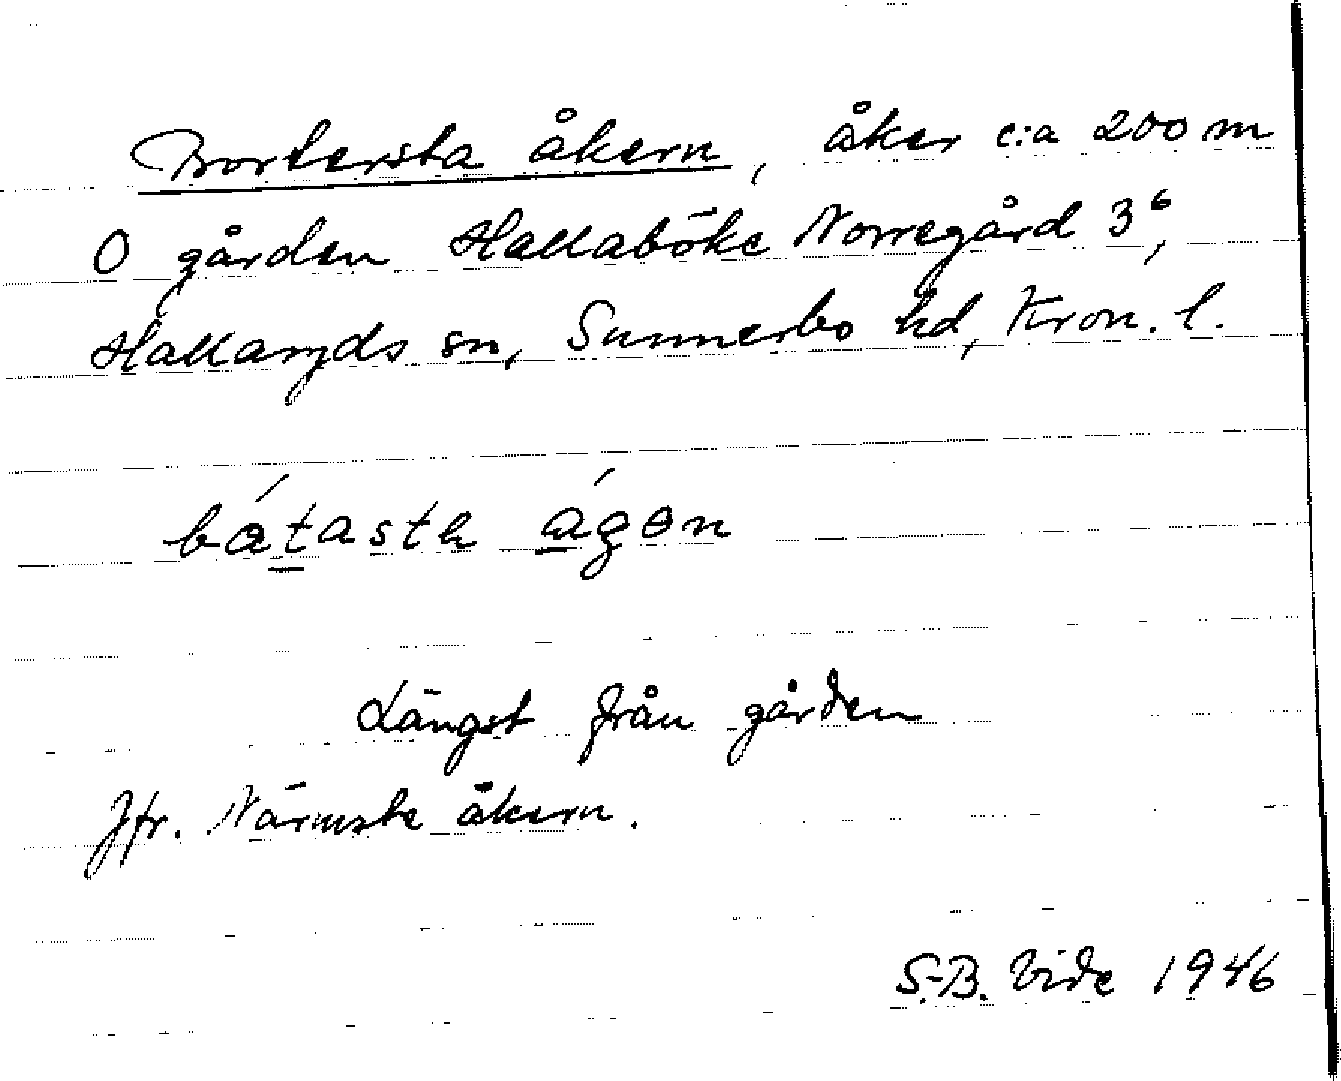 Bortersta åkern, åker c:a 200 m
O gården Hallaböke Norregård 3⁶,
Hallaryds sn, Sunnerbo hd, Kron. l.
bátasta ágən
Längst från gården
Jfr. Närmste åkern.
S.-B. Vide 1946